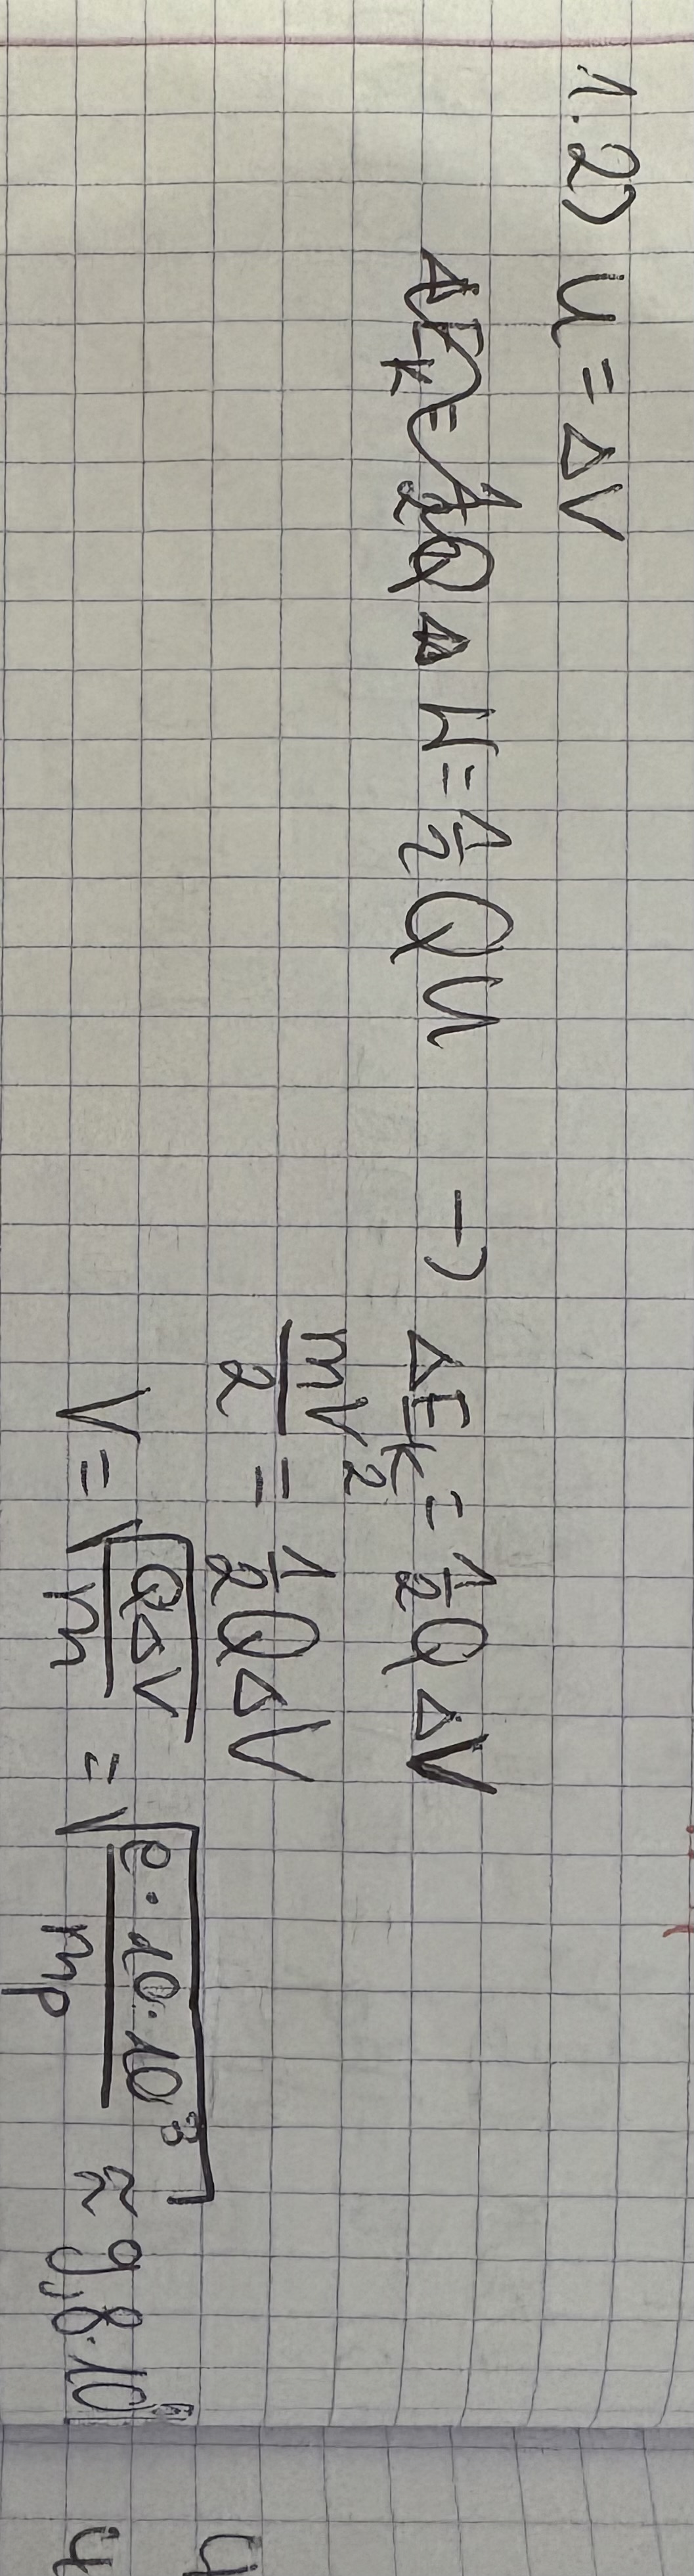 1.2) U = ΔV
W = 1/2 QU → ΔE_k = 1/2 Q ΔV
mv²/2 = 1/2 Q ΔV
v = √(QΔV/m) = √(e · 10 · 10³/m_p) ≈ 9,8 · 10⁵